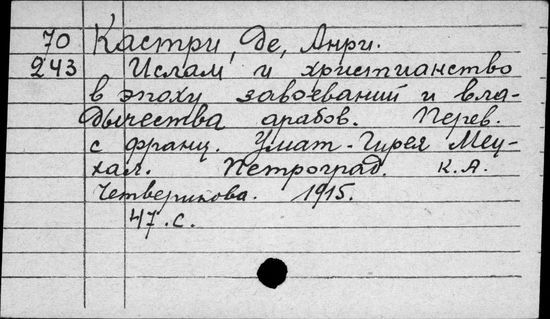 70 Кастри, де, Анри.
243 Ислам и христианство
в эпоху завоеваний и вла-
дычества арабов. Перев.
с франц. Умат-Гирея Мец-
хал. Петроград. К.А.
Четверикова. 1915.
47.с.